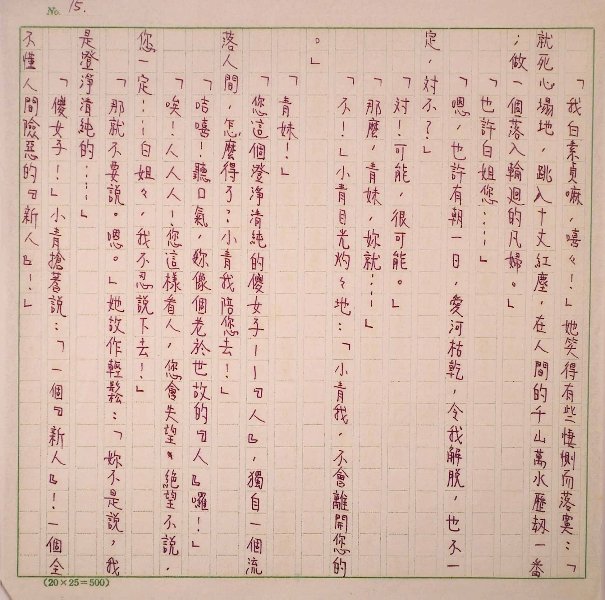 No. 15.
「我白素貞嘛，嘻々！」她笑得有些悽惻而落寞：「
就死心塌地，跳入十丈紅塵，在人間的千山萬水歷劫一番
；做一個落入輪迴的凡婦。」
「也許白姐您……」
「嗯，也許有朝一日，愛河枯乾，令我解脫，也不一
定，對不？」
「對！可能，很可能。」
「那麼，青妹，妳就……」
「不！」小青目光灼々地：「小青我，不會離開您的
。」
「青妹！」
「您這個澄淨清純的傻女子——『人』，獨自一個流
落人間，怎麼得了？小青我陪您去！」
「咭嘻！聽口氣，妳像個老於世故的『人』囉！」
「唉！人人人！您這樣看人，您會失望。絕望不說，
您一定……白姐々，我不忍說下去！」
「那就不要說。嗯。」她故作輕鬆：「妳不是說，我
是澄淨清純的……」
「傻女子！」小青搶著說：「一個『新人』！一個全
不懂人間險惡的『新人』！」
(20×25=500)